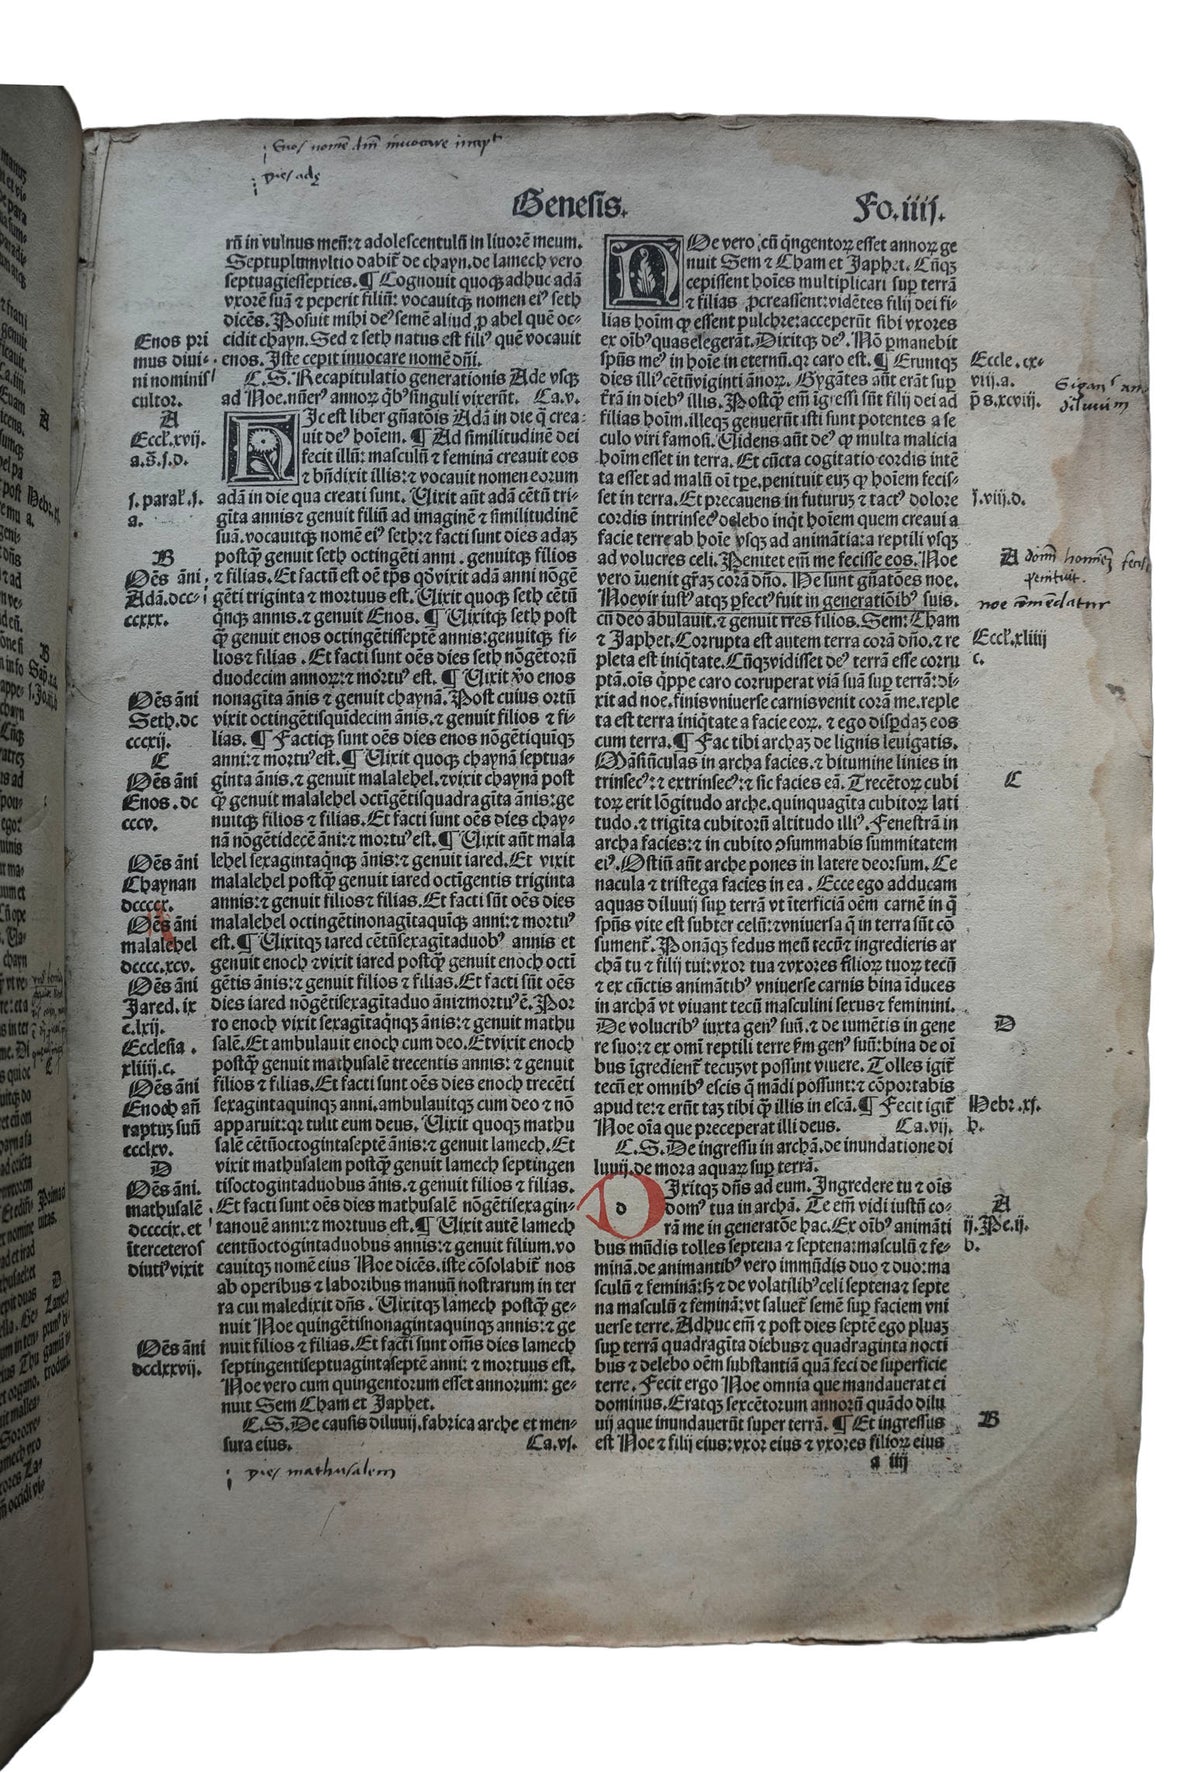 Enos nomē dm̄ invocare incept
Dies adę
Genesis.
Fo.iiij.
rū in vulnus meū:⁊ adolescentulū in liuorē meum.
Septuplum vltio dabit̄ de chayn.de lamech vero
septuagiessepties.¶ Cognouit quoqꝫ adhuc adā
vxorē suā ⁊ peperit filiū: vocauitqꝫ nomen eiꝰ seth
dicēs. Posuit mihi deꝰ semē aliud ꝓ abel quē oc-
cidit chayn. Sed ⁊ seth natus est filiꝰ quē vocauit
enos. Iste cepit inuocare nomē dn̄i.
C.S. Recapitulatio generationis Ade vsqꝫ
ad Noe.nūerꝰ annoꝝ qͥbꝰ singuli vixerūt. Ca.v.
HIc est liber gn̄atōis Adā in die q̄ crea-
uit deꝰ hoīem. ¶ Ad similitudinē dei
fecit illū: masculū ⁊ feminā creauit eos
⁊ bn̄dixit illis:⁊ vocauit nomen eorum
adā in die qua creati sunt. Vixit aūt adā cētū tri-
gīta annis ⁊ genuit filiū ad imaginē ⁊ similitudinē
suā.vocauitqꝫ nomē eiꝰ seth:⁊ facti sunt dies adaꝫ
postq̄ꝫ genuit seth octingēti anni . genuitqꝫ filios
⁊ filias. Et factū est oē tp̄s qd̄ vixit adā anni nōge
gēti triginta ⁊ mortuus est. Vixit quoqꝫ seth cētū
qnqꝫ annis.⁊ genuit Enos. ¶ Vixitqꝫ seth post
q̄ꝫ genuit enos octingētisseptē annis:genuitqꝫ fi-
lios ⁊ filias . Et facti sunt oēs dies seth nōgētorū
duodecim annoꝝ:⁊ mortuꝰ est. ¶ Vixit v̄o enos
nonagīta ānis ⁊ genuit chaynā. Post cuius ortū
vixit octingētisquīdecim ānis.⁊ genuit filios ⁊ fi-
lias. ¶ Factiqꝫ sunt oēs dies enos nōgētiquīqꝫ
anni:⁊ mortuꝰ est. ¶ Vixit quoqꝫ chaynā septua-
ginta ānis.⁊ genuit malalehel.⁊ vixit chaynā post
q̄ꝫ genuit malalehel octīgētisquadragīta ānis:ge
nuitqꝫ filios ⁊ filias. Et facti sunt oēs dies chay-
nā nōgētidecē āni:⁊ mortuꝰ est. ¶ Vixit aūt mala
lehel sexagintaqͥnqꝫ ānis:⁊ genuit iared. Et vixit
malalehel postq̄ꝫ genuit iared octīgentis triginta
annis:⁊ genuit filios ⁊ filias. Et facti sūt oēs dies
malalehel octingētinonagītaquīqꝫ anni:⁊ mortuꝰ
est. ¶ Vixitqꝫ iared cētūsexagītaduobꝰ annis et
genuit enoch ⁊ vixit iared postq̄ꝫ genuit enoch octī
gētis ānis:⁊ genuit filios ⁊ filias. Et facti sūt oēs
dies iared nōgētisexagītaduo āni ⁊ mortuꝰ ē. Por
ro enoch vixit sexagītaqͥnqꝫ ānis:⁊ genuit mathu
salē. Et ambulauit enoch cum deo. Et vixit enoch
postq̄ꝫ genuit mathusalē trecentis annis: ⁊ genuit
filios ⁊ filias. Et facti sunt oēs dies enoch trecēti
sexagintaquinqꝫ anni.ambulauitqꝫ cum deo ⁊ nō
apparuit:qꝛ tulit eum deus. Vixit quoqꝫ mathu
salē cētūoctogintaseptē ānis:⁊ genuit lamech. Et
vixit mathusalem postq̄ꝫ genuit lamech septingen
tisoctogintaduobus ānis.⁊ genuit filios ⁊ filias.
Et facti sunt oēs dies mathusalē nōgētisexagin-
tanouē anni:⁊ mortuus est. ¶ Vixit autē lamech
centūoctogintaduobus annis:⁊ genuit filium.vo
cauitqꝫ nomē eius Noe dicēs.iste cōsolabit̄ nos
ab operibus ⁊ laboribus manuū nostrarum in ter
ra cui maledixit dn̄s . Vixitqꝫ lamech postq̄ꝫ ge-
nuit Noe quingētisnonagintaquinqꝫ annis:⁊ ge
nuit filios ⁊ filias. Et facti sunt om̄s dies lamech
septingentiseptuagintaseptē anni: ⁊ mortuus est.
Noe vero cum quingentorum esset annorum: ge-
nuit Sem Cham et Japhet.
C.S. De causis diluuij.fabrica arche et men-
sura eius. Ca.vj.
Enos pri
mus diui-
ni nominis
cultor.
A
Eccl̓.xvij.
a.⁊.j.d.
j. paral̓.j.
a.
B
Oēs āni
Adā.dcc-
ccxxx.
Oēs āni
Seth.dc
ccxij.
C
Oēs āni
Enos.dc
cccv.
Oēs āni
Chaynan
dccccx.
Oēs āni
malalehel
dcccc.xcv.
Oēs āni
Jared.ix
c.lxij.
Ecclesia .
xliiij.c.
Oēs āni
Enoch añ
raptuꝫ suū
ccclxv.
D
Oēs āni.
mathusalē
dccccix.et
īterceteros
diutiꝰ vixit
Oēs āni
dcclxxvij.
dies mathusalem
NOe vero cū qͥngentoꝝ esset annoꝝ ge
nuit Sem ⁊ Cham et Japhet. Cūqꝫ
cepissent hoīes multiplicari sup̄ terrā
⁊ filias ꝓcreassent:vidētes filij dei fi-
lias hoīm q̄ꝫ essent pulchre:acceperūt sibi vxores
ex oībꝰ quas elegerāt. Dixitqꝫ deꝰ. Nō ꝑmanebit
spūs meꝰ in hoīe in eternū.qꝛ caro est. ¶ Eruntqꝫ
dies illiꝰ cētūviginti ānoꝝ. Gygātes aūt erāt sup̄
t̄rā in diebꝰ illis. Postq̄ꝫ em̄ īgressi sūt filij dei ad
filias hoīm.illeqꝫ genuerūt isti sunt potentes a se
culo viri famosi. Videns aūt deꝰ qꝫ multa malicia
hoīm esset in terra. Et cūcta cogitatio cordis intē
ta esset ad malū oī tp̄e.penituit euꝫ qꝫ hoīem fecis-
set in terra. Et precauens in futuruꝫ ⁊ tactꝰ dolore
cordis intrinsecꝰ delebo inqͥt hoīem quem creaui a
facie terre ab hoīe vsqꝫ ad animātia:a reptili vsqꝫ
ad volucres celi. Penitet em̄ me fecisse eos. Noe
vero īuenit gr̄aꝫ corā dn̄o. He sunt gn̄atōes noe.
Noe vir iustꝰ atqꝫ ꝑfectꝰ fuit in generatiōibꝰ suis.
cū deo ābulauit.⁊ genuit tres filios. Sem: Cham
⁊ Japhet. Corrupta est autem terra corā dn̄o.⁊ re
pleta est iniqͥtate. Cūqꝫ vidisset deꝰ terrā esse corru
ptā.oīs qͥppe caro corruperat viā suā sup̄ terrā:di-
xit ad noe.finis vniuerse carnis venit corā me.reple
ta est terra iniqͥtate a facie eoꝝ. ⁊ ego disꝑdaꝫ eos
cum terra.¶ Fac tibi archaꝫ de lignis leuigatis.
Māsiūculas in archa facies.⁊ bitumine linies in
trinsecꝰ:⁊ extrinsecꝰ:⁊ sic facies eā. Trecētoꝝ cubi
toꝝ erit lōgitudo arche.quinquagīta cubitoꝝ lati
tudo.⁊ trigīta cubitorū altitudo illiꝰ. Fenestrā in
archa facies:⁊ in cubito ꝯsummabis summitatem
eiꝰ. Ostiū aūt arche pones in latere deorsum. Ce
nacula ⁊ tristega facies in ea . Ecce ego adducam
aquas diluuij sup̄ terrā vt īterficiā oēm carnē in q̄
spūs vite est subter celū:⁊ vniuersa q̄ in terra sūt cō
sument̄. Ponāqꝫ fedus meū tecū ⁊ ingredieris ar
chā tu ⁊ filij tui:vxor tua ⁊ vxores filioꝝ tuoꝝ tecū
⁊ ex cūctis animātibꝰ vniuerse carnis bina īduces
in archā vt viuant tecū masculini sexus ⁊ feminini.
De volucribꝰ iuxta genꝰ suū.⁊ de iumētis in gene
re suo:⁊ ex omī reptili terre ẜm genꝰ suū:bina de oī
bus īgredient̄ tecuꝫ vt possint viuere. Tolles igit̄
tecū ex omnibꝰ escis q̄ mādi possunt:⁊ cōportabis
apud te:⁊ erūt taꝫ tibi q̄ꝫ illis in escā.¶ Fecit igit̄
Noe oīa que preceperat illi deus. Ca.vij.
C.S. De ingressu in archā.de inundatione di
luuij.de mora aquaꝝ sup̄ terrā.
DIxitqꝫ dn̄s ad eum. Ingredere tu ⁊ oīs
domꝰ tua in archā. Te em̄ vidi iustū co-
rā me in generatōe hac. Ex oībꝰ animāti
bus mūdis tolles septena ⁊ septena:masculū ⁊ fe-
minā.de animantibꝰ vero immūdis duo ⁊ duo:ma
sculū ⁊ feminā:sꝫ ⁊ de volatilibꝰ celi septena ⁊ septe
na masculū ⁊ feminā:vt saluet̄ semē sup̄ faciem vni
uerse terre. Adhuc em̄ ⁊ post dies septē ego pluaꝫ
sup̄ terrā quadragīta diebus ⁊ quadraginta nocti
bus ⁊ delebo oēm substantiā quā feci de superficie
terre. Fecit ergo Noe omnia que mandauerat ei
dominus. Eratqꝫ sexcētorum annorū quādo dilu
uij aque inundauerūt super terrā. ¶ Et ingressus
est Noe ⁊ filij eius:vxor eius ⁊ vxores filioꝝ eius
a iiij
Eccle.cx-
viij.a.
p̄s.xcviij.
Gigan
diluuium
j.viij.d.
A
domī hominē
penituit.
noe cōmēdatur
Eccl̓.xliiij
c.
C
D
Hebr.xj.
b.
A
ij.Pe.ij.
b.
B